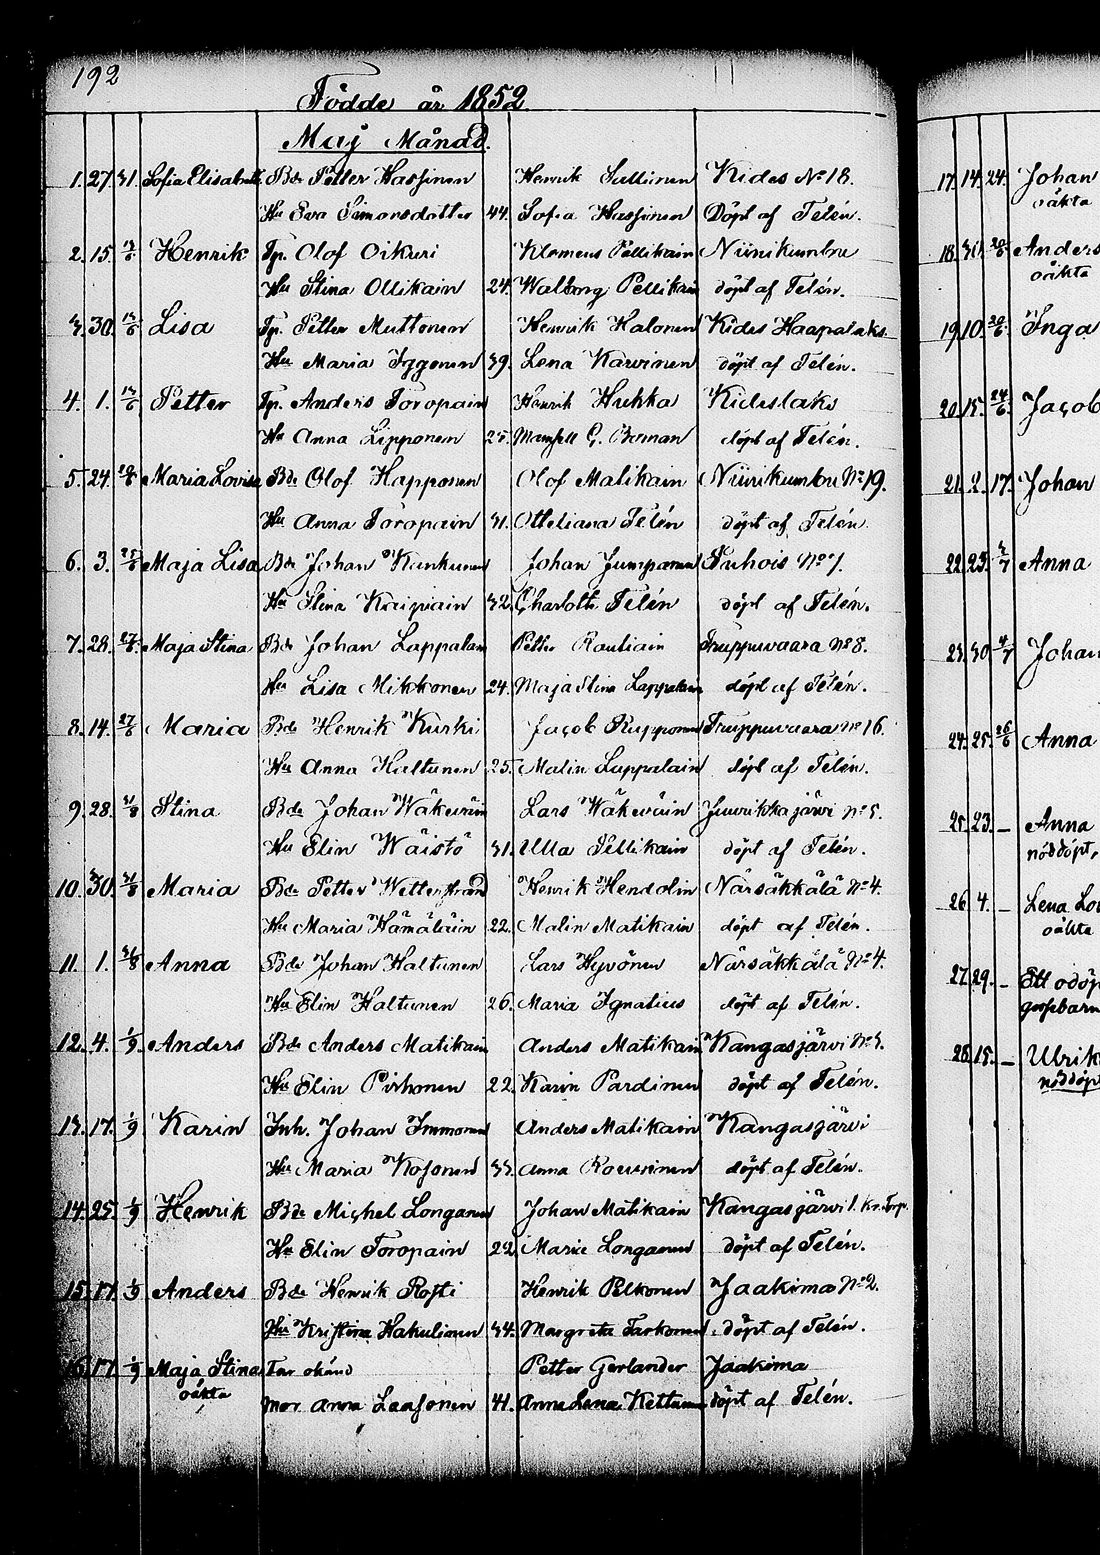 192
Födde år 1852
Maj Månad.
1. 27. 31. Sofia Elisabeth Bde Petter Hassinen Henrik Sallinen Kides No 18.
Hu Eva Simonsdotter 44. Sofia Hassinen Döpt af Telén.
2. 15. 13/6 Henrik Tp. Olof Oikuri Klemens Pellikain Niinikumbu
Hu Stina Ollikain 24. Walborg Pellikain döpt af Telén.
3. 30. 13/6 Lisa Tp. Petter Muttonen Henrik Halonen Kides Haapalaks
Hu Maria Iggonen 39. Lena Karvinen döpt af Telén.
4. 1. 13/6 Petter Tp. Anders Toropain Henrik Hukka Kideslaks
Hu Anna Lipponen 25. Mamsell G. Borman döpt af Telén.
5. 24. Maria Lovisa Bde Olof Happonen Olof Matikain Niinikumbu No 19.
Hu Anna Toropain 31. Otteliana Telén döpt af Telén.
6. 3. 25/6 Maja Lisa Bde Johan Kunkunen Johan Jumpanen Puhois No 7.
Hu Stina Kaipiain 32. Charlott Telén döpt af Telén.
7. 28. 27/6 Maja Stina Bde Johan Lappalain Petter Rautiain Truppuvaara No 8.
Hu Lisa Mikkonen 24. Maja Stina Lappalain döpt af Telén.
8. 14. 27/6 Maria Bde Henrik Kurki Jacob Rupponen Truppuvaara No 16.
Hu Anna Haltunen 25. Malin Lappalain döpt af Telén.
9. 28. 31/8 Stina Bde Johan Wäkeväin Lars Wäkeväin Juurikkajärvi No 5.
Hu Elin Wäistö 31. Ulla Pellikain döpt af Telén.
10. 30. 31/8 Maria Bde Petter Wetterstrand Henrik Hendolin Närsäkkälä No 4.
Hu Maria Hämäläin 22. Malin Matikain döpt af Telén.
11. 1. 31/8 Anna Bde Johan Haltunen Lars Hyvönen Närsäkkälä No 4.
Hu Elin Haltunen 26. Maria Ignatius döpt af Telén.
12. 4. 1/9 Anders Bde Anders Matikain Anders Matikain Kangasjärvi No 5.
Hu Elin Pirhonen 22. Karin Pardinen döpt af Telén.
13. 17. 1/9 Karin Inh. Johan Immonen Anders Matikain Kangasjärvi
Hu Maria Kosonen 33. Anna Rouvinen döpt af Telén.
14. 25. 1/9 Henrik Bde Michel Longanen Johan Matikain Kangasjärvi 1. Kr. Torp.
Hu Elin Toropain 22. Maria Longanen döpt af Telén.
15. 17. 1/9 Anders Bde Henrik Rosti Henrik Pelkonen Jaakima No 2.
Hu Kristina Hakulinen 34. Margreta Tarkonen döpt af Telén.
16. 17. 1/9 Maja Stina Far okänd Petter Gerlander Jaakima
oäkta Mor Anna Laasonen 41. Anna Lena Kettunen döpt af Telén.
17. 14. 24. Johan
oäkta
18. Anders
oäkta
19. 10. Inga
20. 15. 24/6 Jacob
21. 2. 17. Johan
22. 23. Anna
23. 30 4/7 Johan
24. 25. 26/6 Anna
25. 23. – Anna
nöddöpt,
26. 4. – Lena
oäkta
27. 29. – Ett
28. 15. – Ulrik
nöddöpt